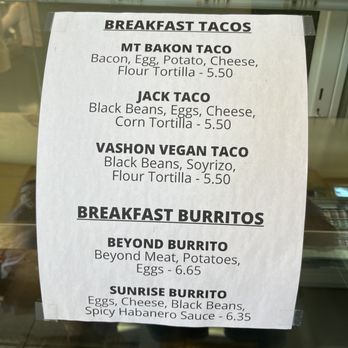 BREAKFAST TACOS
MT BAKON TACO
Bacon, Egg, Potato, Cheese,
Flour Tortilla - 5.50
JACK TACO
Black Beans, Eggs, Cheese,
Corn Tortilla - 5.50
VASHON VEGAN TACO
Black Beans, Soyrizo,
Flour Tortilla - 5.50
BREAKFAST BURRITOS
BEYOND BURRITO
Beyond Meat, Potatoes,
Eggs - 6.65
SUNRISE BURRITO
Eggs, Cheese, Black Beans,
Spicy Habanero Sauce - 6.35